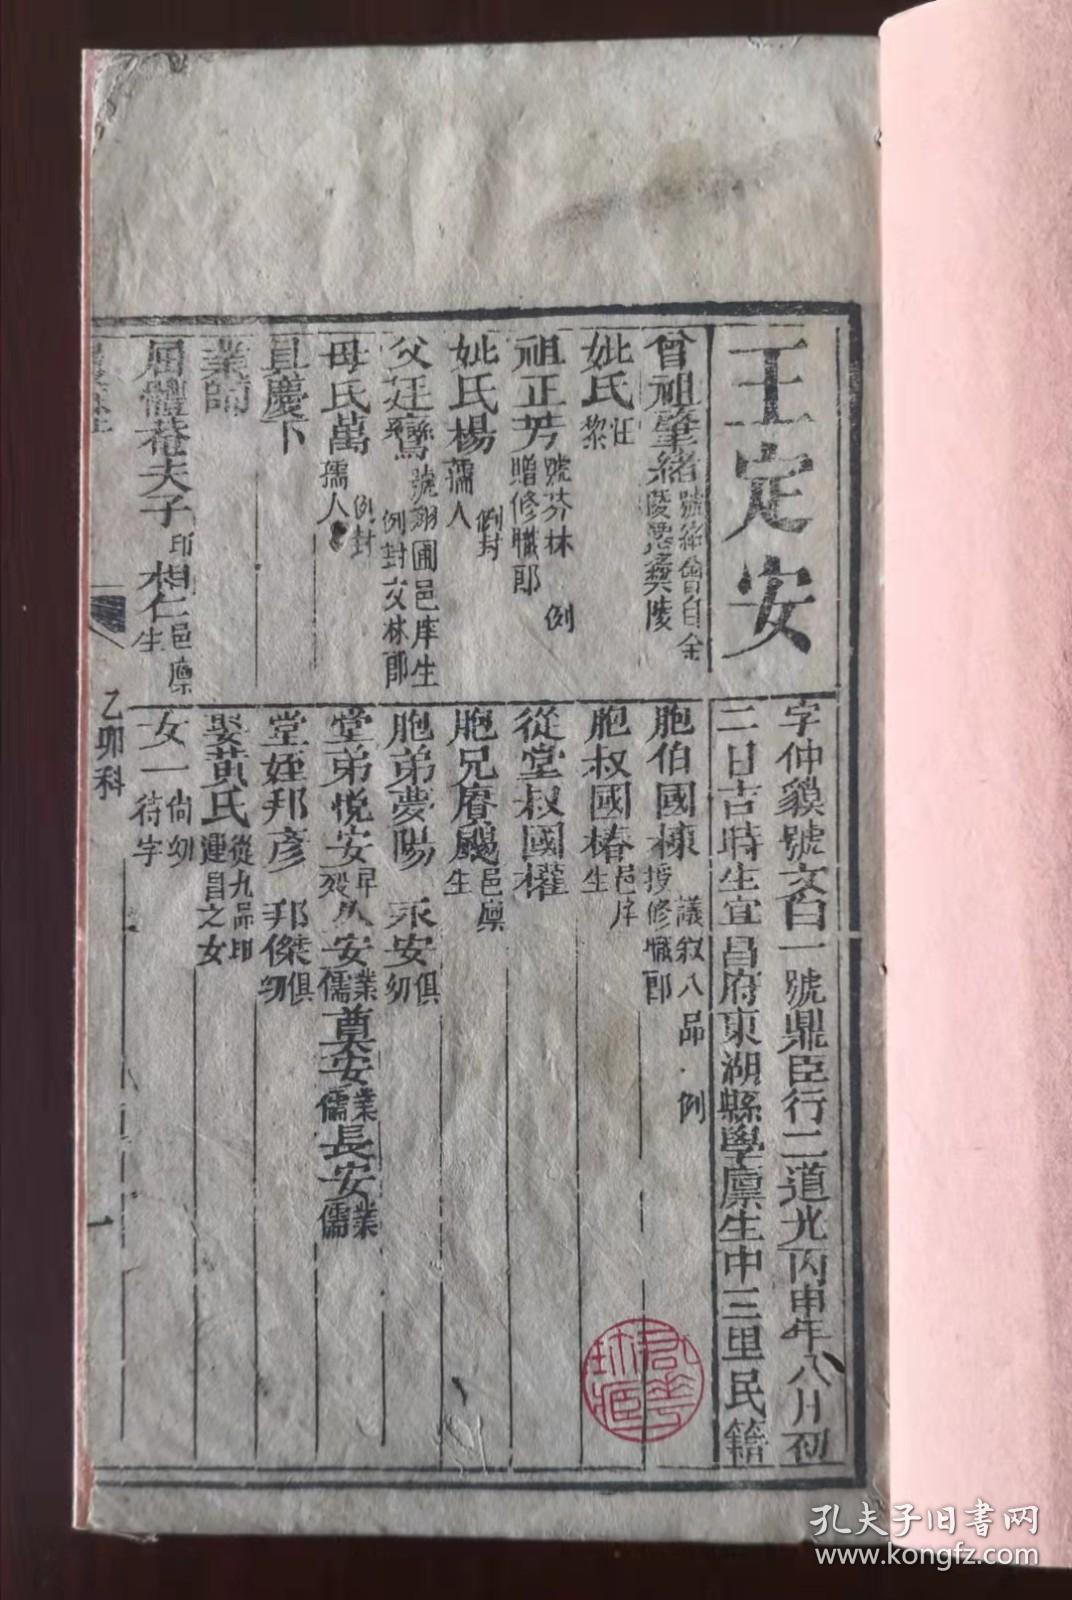 王定安
字仲貘號文白一號鼎臣行二道光丙申年八月初
二日吉時生宜昌府東湖縣學廩生中三里民籍
曾祖肇緒
妣氏
祖正芳號芬林 例贈修職郎
妣氏楊例封孺人
父廷鸞號翊圃邑庠生 例封文林郎
母氏萬例封孺人
具慶下
業師
屈體菴夫子印想仁邑廩生
胞伯國棟議叙八品 例授修職郎
胞叔國椿邑庠生
從堂叔國權
胞兄賡颺邑廩生
胞弟夢陽 永安俱幼
堂弟悅安早歿 久安業儒 奠安業儒 長安業儒
堂姪邦彥 邦傑俱幼
娶黃氏從九品印運昌之女
女一尚幼待字
乙卯科
一
孔夫子旧书网
www.kongfz.com